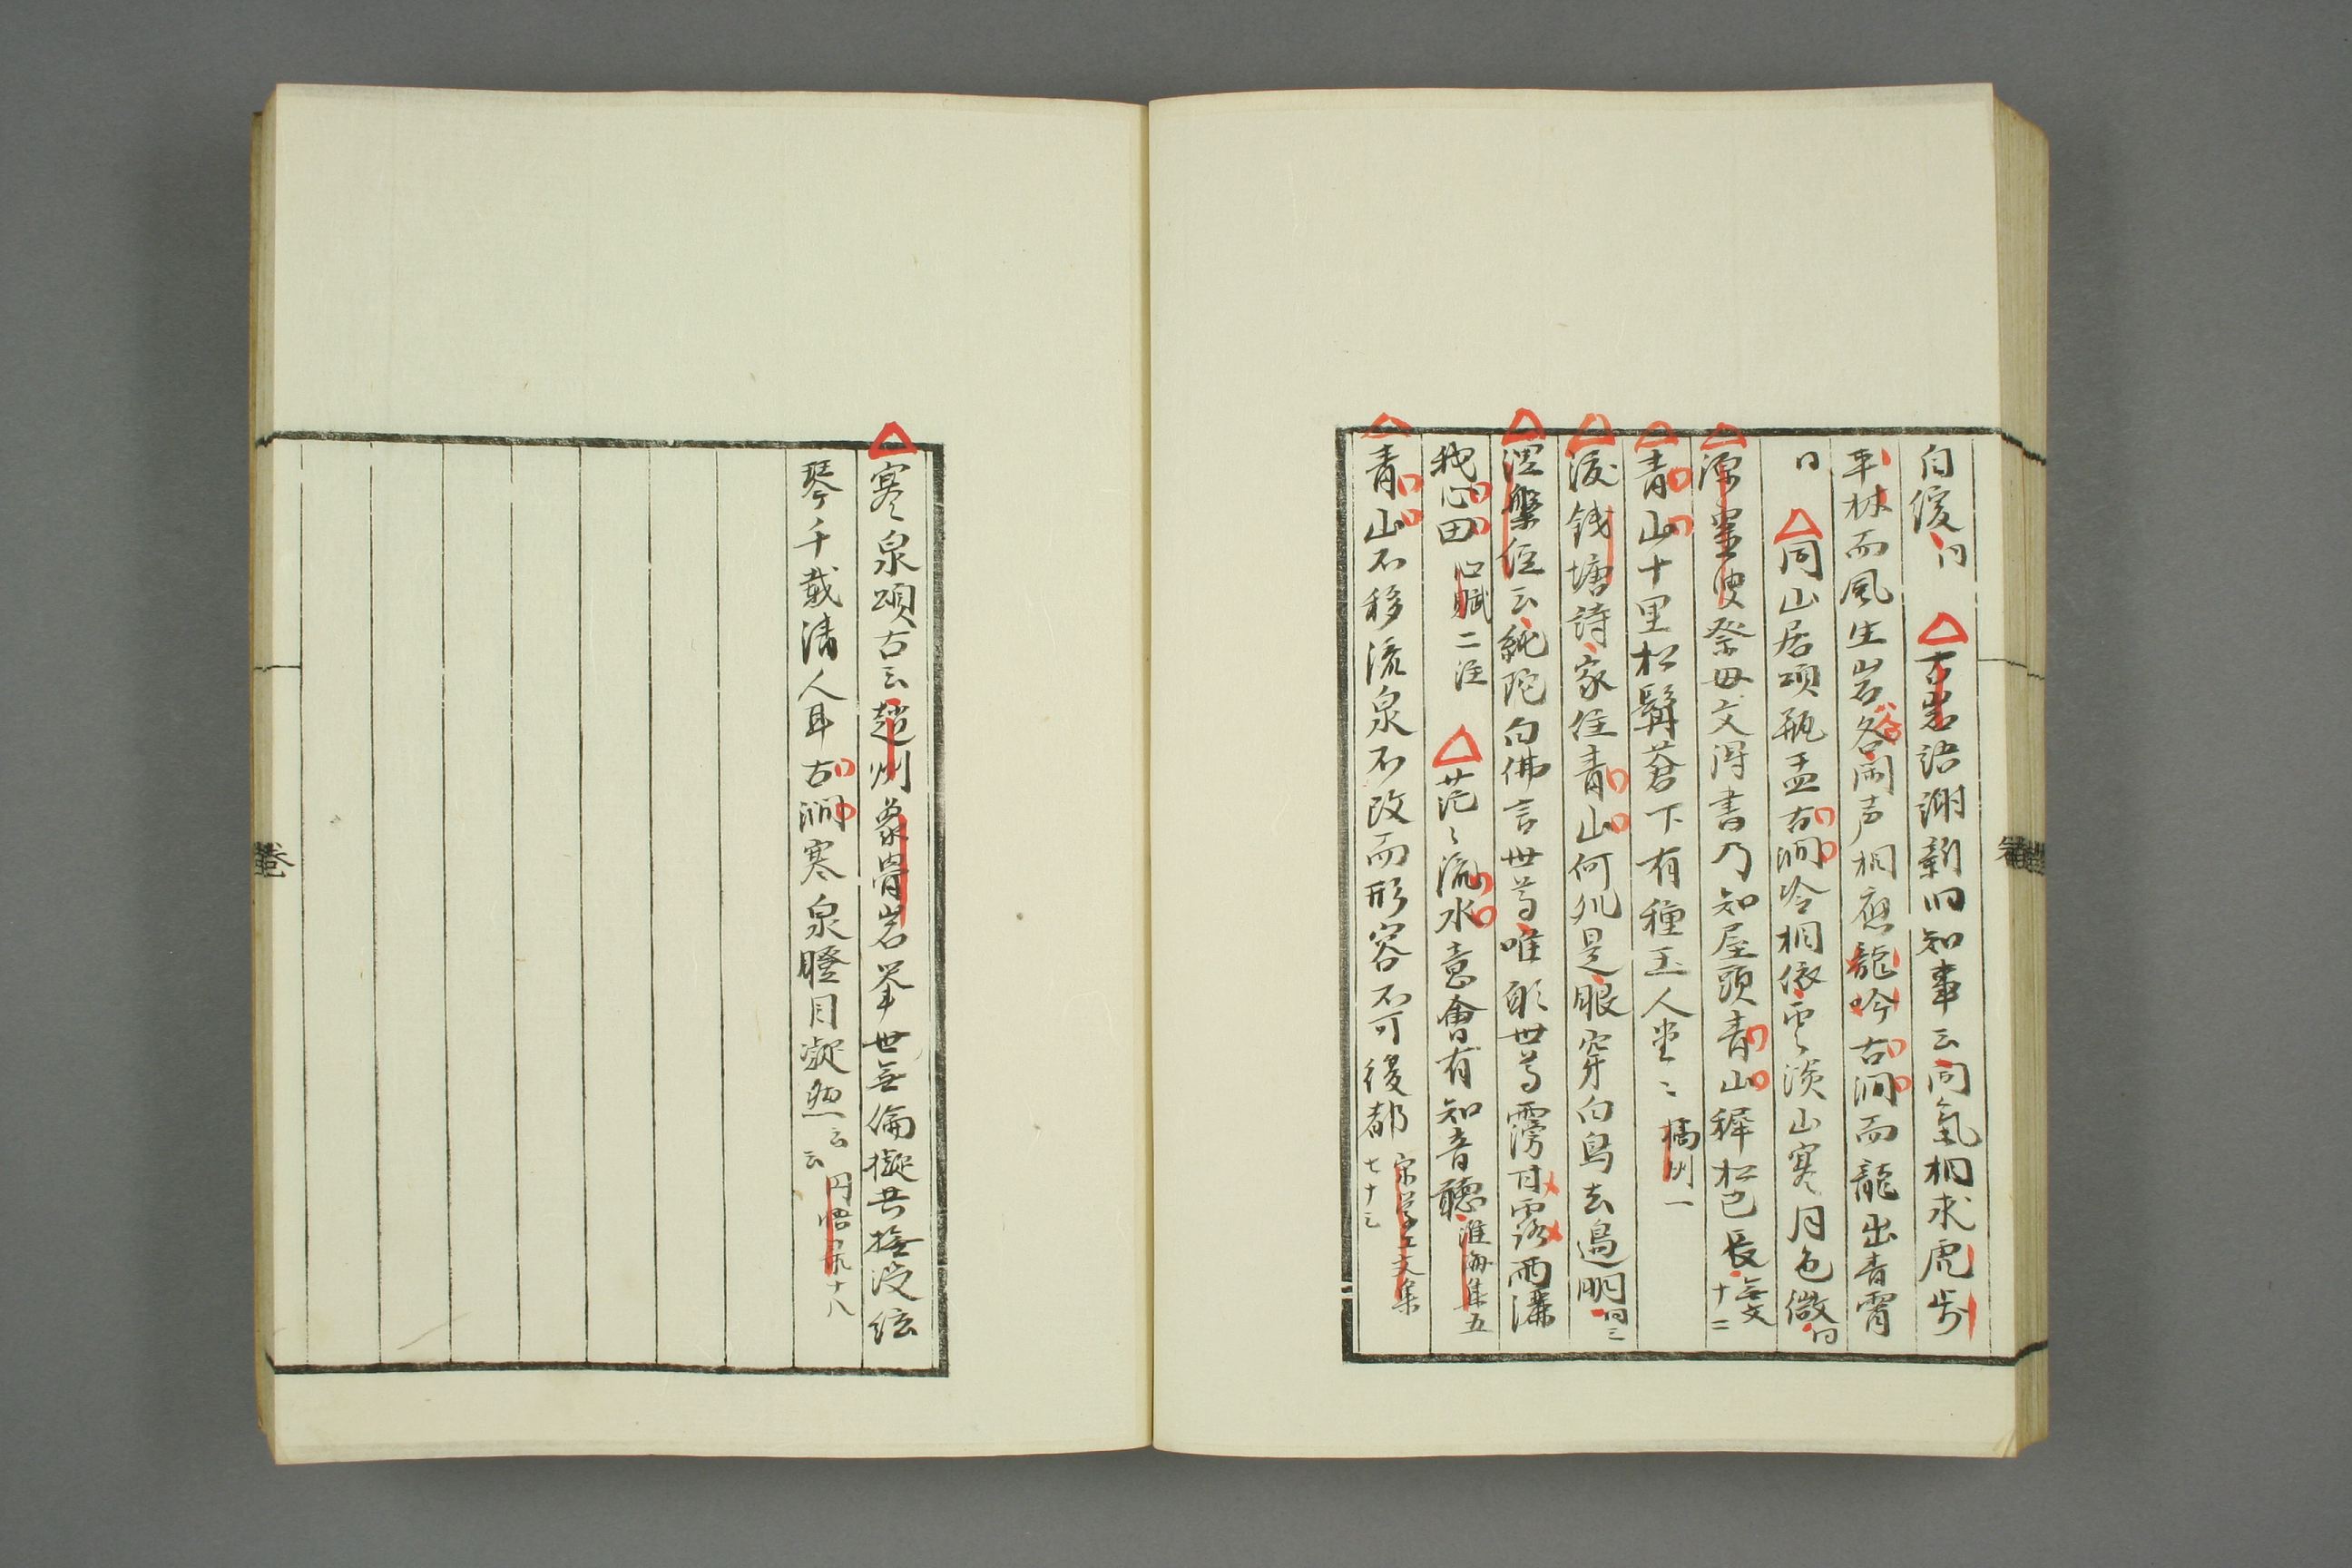 白復同 古岩語謝新旧知事云同氣相求虎步
平林而風生岩谷同声相應龍吟古澗而龍出青霄
同 同山居頌瓶盂古澗冷相依雲淡山寒月色微同
深靈叟祭母文得書乃知屋頭青山稺松已長無文十二
青山十里松髯蒼下有種玉人堂〻橘州一
渡錢塘詩家住青山何処是眼穿白鳥去邊明同三
涅槃經云純陀白佛言世尊唯願世尊霶甘露雨灑
我心田心賦二注 茫〻流水意會有知音聽淮海集五
青山不移流泉不改而形容不可復都宋学士文集七十三
寒泉頌古云趙州象骨岩擧世無倫擬共撫沒絃
琴千載清人耳古澗寒泉瞪目凝然云云円悟录十八
卷